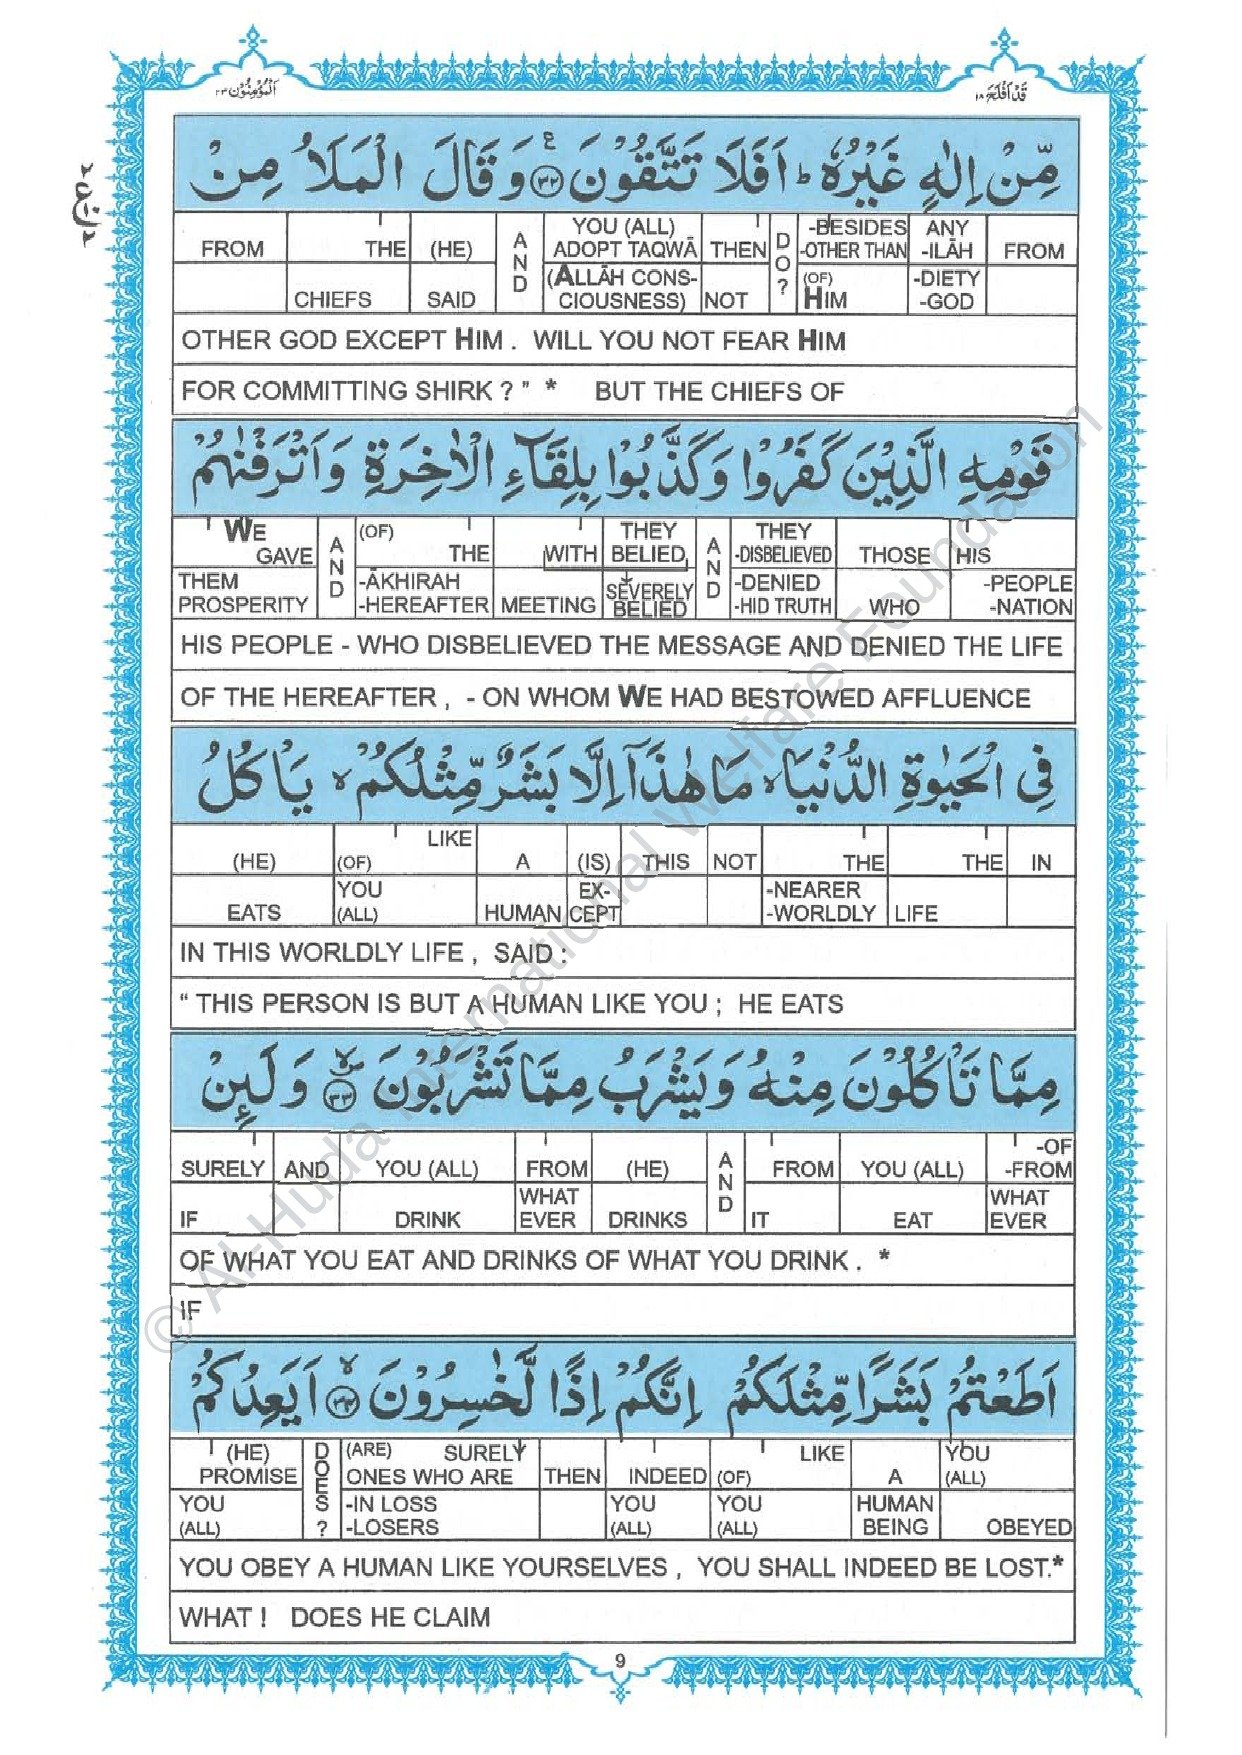 اَلْمُؤْمِنُوْن ٢٣
قَدْ اَفْلَحَ ١٨
مِّنْ اِلٰهٍ غَيْرُهٗ ؕ اَفَلَا تَتَّقُوْنَ ﴿٣٢﴾ ع وَقَالَ الْمَلَاُ مِنْ
FROM THE (HE) AND YOU (ALL) ADOPT TAQWĀ THEN DO? -BESIDES -OTHER THAN ANY -ILĀH FROM
CHIEFS SAID (ALLĀH CONSCIOUSNESS) NOT (OF) HIM -DIETY -GOD
OTHER GOD EXCEPT HIM . WILL YOU NOT FEAR HIM
FOR COMMITTING SHIRK ? " * BUT THE CHIEFS OF
قَوْمِهِ الَّذِيْنَ كَفَرُوْا وَكَذَّبُوْا بِلِقَآءِ الْاٰخِرَةِ وَاَتْرَفْنٰهُمْ
WE GAVE AND (OF) THE WITH THEY BELIED, AND THEY -DISBELIEVED THOSE HIS
THEM PROSPERITY -ĀKHIRAH -HEREAFTER MEETING SEVERELY BELIED -DENIED -HID TRUTH WHO -PEOPLE -NATION
HIS PEOPLE - WHO DISBELIEVED THE MESSAGE AND DENIED THE LIFE
OF THE HEREAFTER , - ON WHOM WE HAD BESTOWED AFFLUENCE
فِى الْحَيٰوةِ الدُّنْيَا ۙ مَا هٰذَآ اِلَّا بَشَرٌ مِّثْلُكُمْ ۙ يَاْكُلُ
(HE) (OF) LIKE A (IS) THIS NOT THE THE IN
EATS YOU (ALL) HUMAN EX-CEPT -NEARER -WORLDLY LIFE
IN THIS WORLDLY LIFE , SAID :
" THIS PERSON IS BUT A HUMAN LIKE YOU ; HE EATS
مِمَّا تَاْكُلُوْنَ مِنْهُ وَيَشْرَبُ مِمَّا تَشْرَبُوْنَ ﴿٣٣﴾ ۙ وَلَئِنْ
SURELY AND YOU (ALL) FROM (HE) AND FROM YOU (ALL) -OF -FROM
IF DRINK WHAT EVER DRINKS IT EAT WHAT EVER
OF WHAT YOU EAT AND DRINKS OF WHAT YOU DRINK . *
IF
اَطَعْتُمْ بَشَرًا مِّثْلَكُمْ اِنَّكُمْ اِذًا لَّخٰسِرُوْنَ ﴿٣٤﴾ ۙ اَيَعِدُكُمْ
(HE) PROMISE DOES? (ARE) SURELY ONES WHO ARE THEN INDEED (OF) LIKE A YOU (ALL)
YOU (ALL) -IN LOSS -LOSERS YOU (ALL) YOU (ALL) HUMAN BEING OBEYED
YOU OBEY A HUMAN LIKE YOURSELVES , YOU SHALL INDEED BE LOST.*
WHAT ! DOES HE CLAIM
9
© Al-Huda International Welfare Foundation